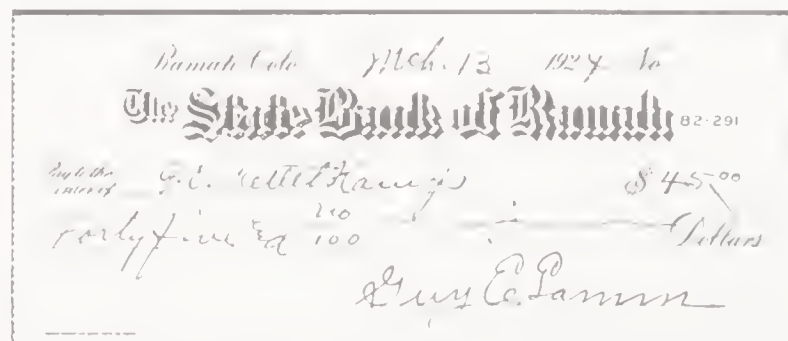 Ramah Colo Mch. 13 1924 No
The State Bank of Ramah 82-291
Pay to the
order of J. E. $ 45.00
Forty five & no/100 Dollars
Guy E.